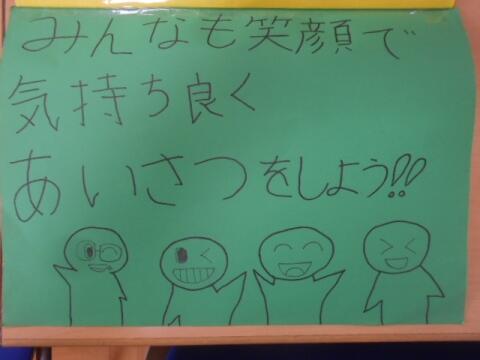 みんなも笑顔で
気持ち良く
あいさつをしよう!!